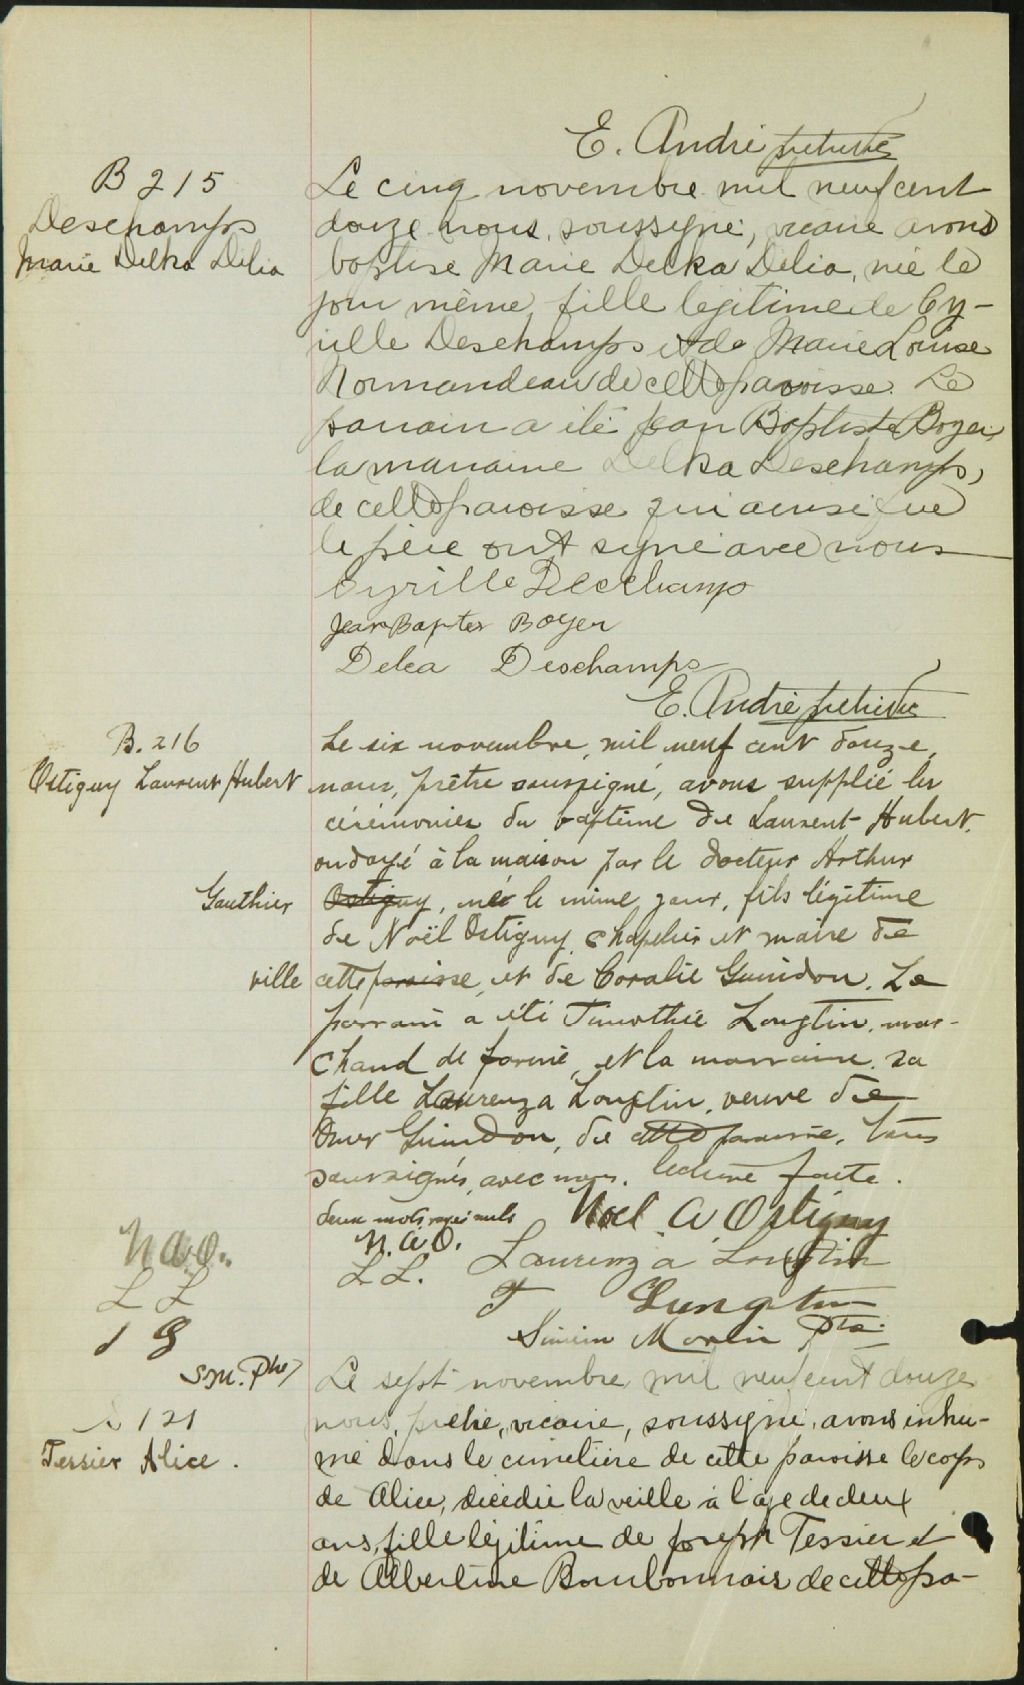 E. André ptre vic
B 215
Deschamps
Marie Delka Délia
Le cinq novembre mil neuf cent
douze nous, soussigné, vicaire avons
baptisé Marie Delka Délia, née le
jour même, fille légitime de Cy-
rille Deschamps et de Marie Louise
Normandeau de cette paroisse. Le
parrain a été Jean Baptiste Boyer,
la marraine Delka Deschamps,
de cette paroisse qui ainsi que
le père ont signé avec nous
Cyrille Deschamp
Jean Baptes Boyer
Delca Deschamps
E. André ptre vic
B. 216
Ostiguy Laurent Hubert
Le six novembre, mil neuf cent douze,
nous, prêtre soussigné, avons supplié les
cérémonies du baptême de Laurent-Hubert,
ondoyé à la maison par le docteur Arthur
Gauthier
Ostiguy, né le même jour, fils légitime
de Noël Ostiguy, chapelier et maire de
ville
cette paroisse, et de Coralie Guindon. Le
parrain a été Timothée Longtin, mar-
chand de farine, et la marraine, sa
fille Laurenza Longtin, veuve de
Omer Guindon, de cette paroisse, tous
soussignés, avec nous. lecture faite.
deux mots rayés nuls
Noel A Ostiguy
N. A. O.
L L.
Laurenza Longtin
T Longtin
Siméon Morin Ptre.
N a. o.
L L
S.M. Ptre
Le sept novembre mil neuf cent douze
nous, prêtre, vicaire, soussigné, avons inhu-
S 121
Tessier Alice.
mé dans le cimetière de cette paroisse le corps
de Alice, décédée la veille à l'age de deux
ans, fille légitime de Joseph Tessier et
de Albertine Bourbonnais de cette pa-